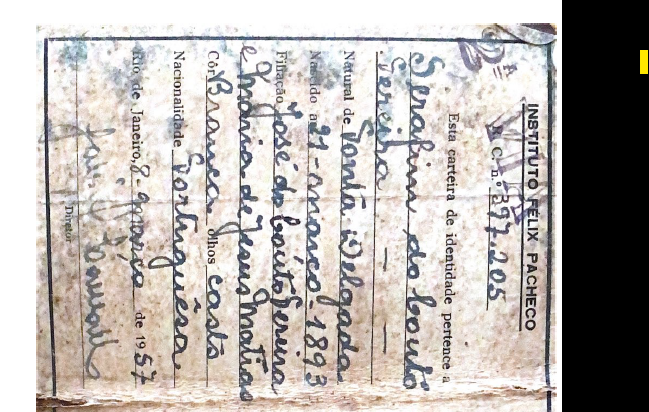 INSTITUTO FELIX PACHECO
R. C. n.º 397.205
2ª VIA
Esta carteira de identidade pertence a
Serafim do Couto
Pereira
Natural de Santa Delgada
Nascido a 21-março-1893
Filiação José do Couto Pereira
e Maria de Jesus Matias
Côr Branca olhos castº
Nacionalidade Portuguêsa
Rio de Janeiro, 8-março de 1957
Diretor